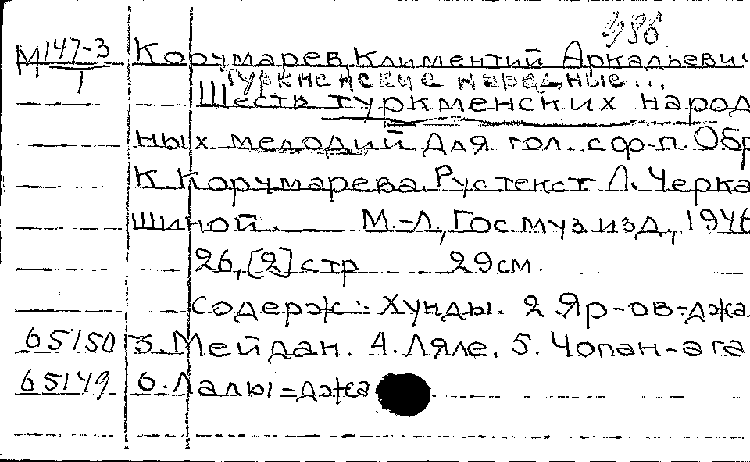 986
М 147-3 Корчмарев, Климентий Аркадьеви
1 Туркменские народные...
Шесть туркменских народ
ных мелодий Для гол. с ф-п. Обр
К Корчмарева. Рус текст Л. Черка
шиной. М.-Л., Гос муз изд., 1946
26, [2] стр 29 см.
Содерж: Хунды. 2. Яр-ов-джа
65150 3. Мейдан. 4. Ляле. 5. Чопан-ага
65149 6. Лалы-джа